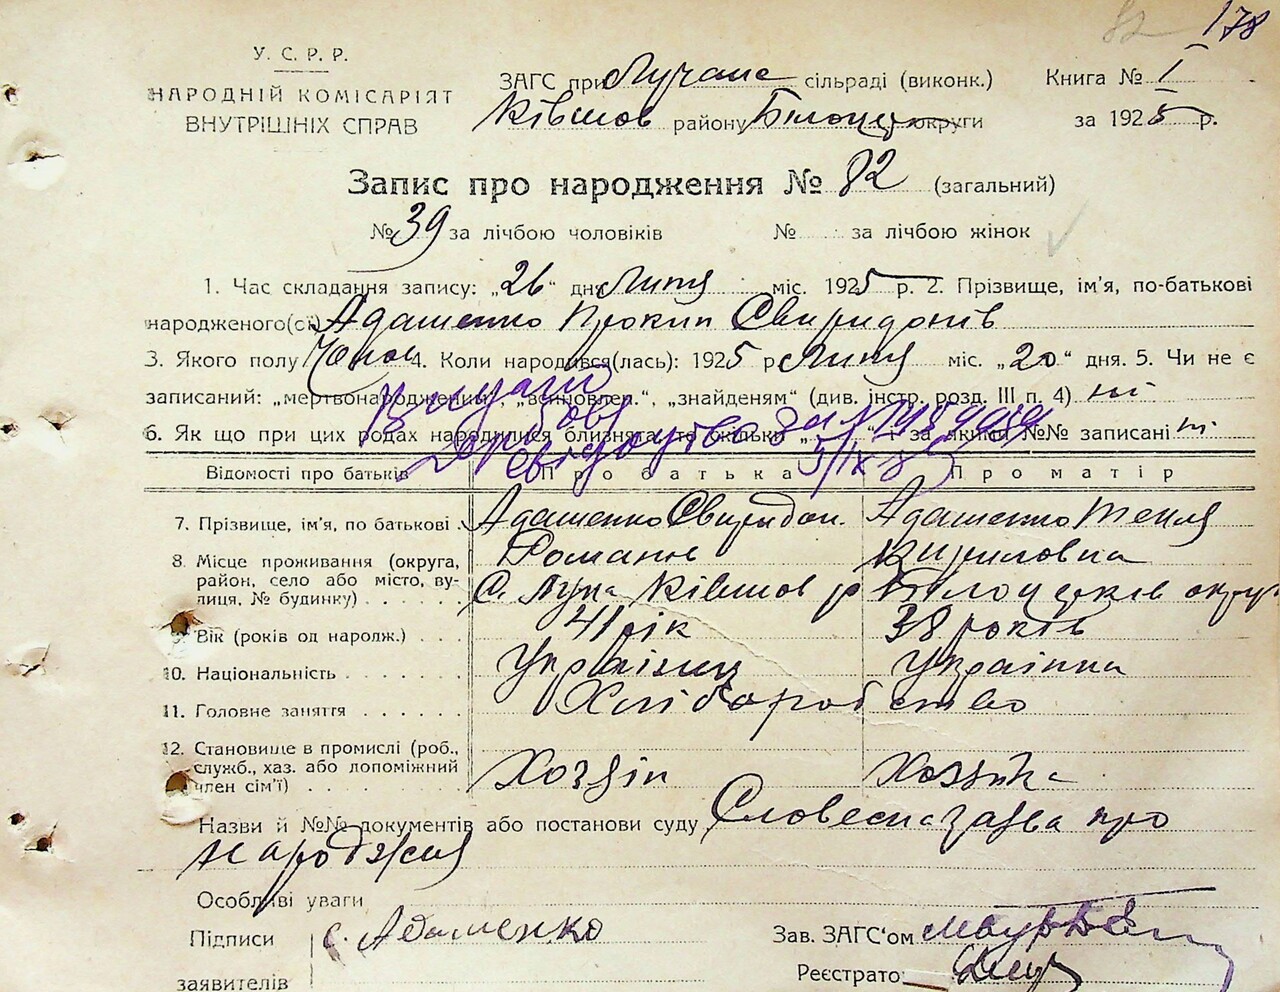 82 178
У. С. Р. Р.
НАРОДНІЙ КОМІСАРІЯТ
ВНУТРІШНІХ СПРАВ
ЗАГС при Лучанс сільраді (виконк.) Книга № 1
Ківшов району Білоцер округи за 1925 р.
Запис про народження № 82 (загальний)
№ 39 за лічбою чоловіків № за лічбою жінок
1. Час складання запису: „26“ дня Липня міс. 1925 р. 2. Прізвище, ім'я, по-батькові
народженого(ої) Адаменко Прокип Свиридонів
3. Якого полу Чолов 4. Коли народився(лась): 1925 р Липня міс. „20“ дня. 5. Чи не є
записаний: „мертвонароджений“, „всиновлен.“, „знайденям“ (див. інстр. розд. III п. 4) ні
6. Як що при цих родах народилися близнята, то скільки „ “ і за якими №№ записані ні
Видано
свідоцтво за №
Відомості про батьків Про батька Про матір
7. Прізвище, ім'я, по батькові Адаменко Свиридон Адаменко Текля
Романів Кириловна
8. Місце проживання (округа, район, село або місто, вулиця, № будинку) С. Лука Ківшов р Білоцерків округ
9. Вік (років од народж.) 41 рік 38 років
10. Національність Українец Українка
11. Головне заняття Хліборобство
12. Становище в промислі (роб., служб., хаз. або допоміжний член сім'ї) Хозяїн Хозяйка
Назви й №№ документів або постанови суду Словесна заява про
народжня
Особливі уваги
Підписи С. Адаменко Зав. ЗАГС'ом
заявителів Реєстратор